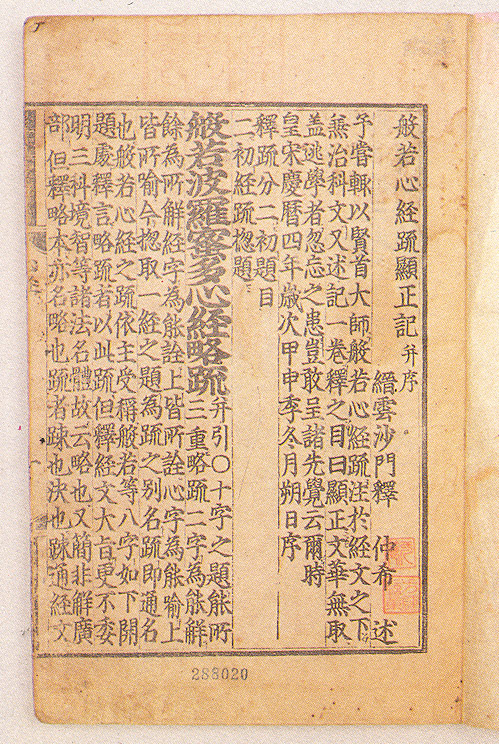 般若心経疏顯正記并序
縉雲沙門釋 仲希 述
予嘗輙以賢首大師般若心経疏注於経文之下
兼治科文又述記一卷釋之目曰顯正文華無取
盖逃學者忽忘之患豈敢呈諸先覺云爾時
皇宋慶曆四年歲次甲申季冬月朔日序
釋疏分二初題目
二初経疏揔題
般若波羅蜜多心経略疏并引〇十字之題能所
三重略疏二字為能解
餘為所解経字為能詮上皆所詮心字為能喻上
皆所喻今揔取一経之題為疏之别名疏即通名
也般若心経之疏依主受稱般若等八字如下開
題處釋言略疏者以此疏但釋経文大旨更不委
明三科境智等諸法名體故云略也又簡非解廣
部但釋略本亦名略也疏者踈也決也踈通経文
288020